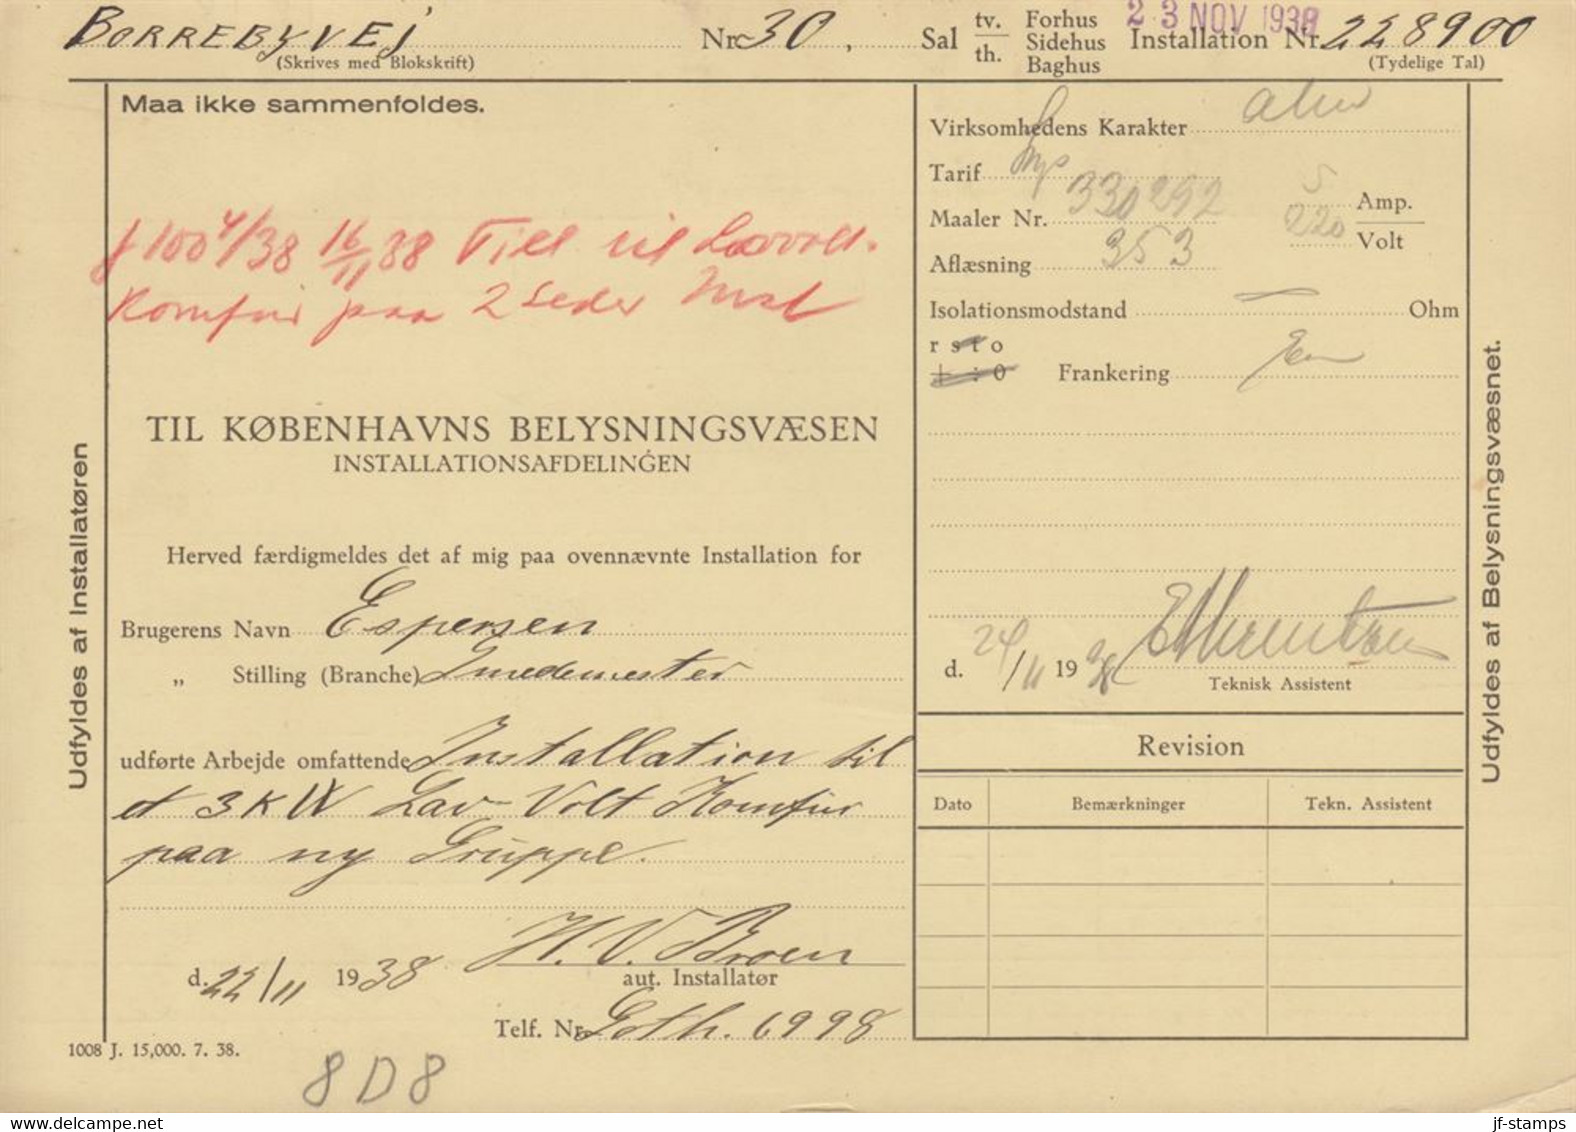 BORREBYVEJ Nr. 30, Sal tv. th. Forhus Sidehus Baghus 23 NOV 1938 Installation Nr. 228900
(Skrives med Blokskrift) (Tydelige Tal)
Maa ikke sammenfoldes.
4/38 16/11 38 Till til Lavvolt-
Komfur paa 2 Leder
TIL KØBENHAVNS BELYSNINGSVÆSEN
INSTALLATIONSAFDELINGEN
Herved færdigmeldes det af mig paa ovennævnte Installation for
Brugerens Navn Espersen
„ Stilling (Branche) Smedemester
udførte Arbejde omfattende Installation til
et 3 KW Lav-Volt Komfur
paa ny Gruppe.
d. 22/11 1938 H. V. Broen
aut. Installatør
Telf. Nr. Goth. 6998
1008 J. 15,000. 7. 38.
8D8
Udfyldes af Installatøren
Virksomhedens Karakter
Tarif Lys
Maaler Nr. 330292 5 Amp.
220 Volt
Aflæsning 353
Isolationsmodstand — Ohm
r s t o
+ : 0 Frankering
d. 24/11 1938
Teknisk Assistent
Revision
Dato Bemærkninger Tekn. Assistent
Udfyldes af Belysningsvæsnet.
jf-stamps